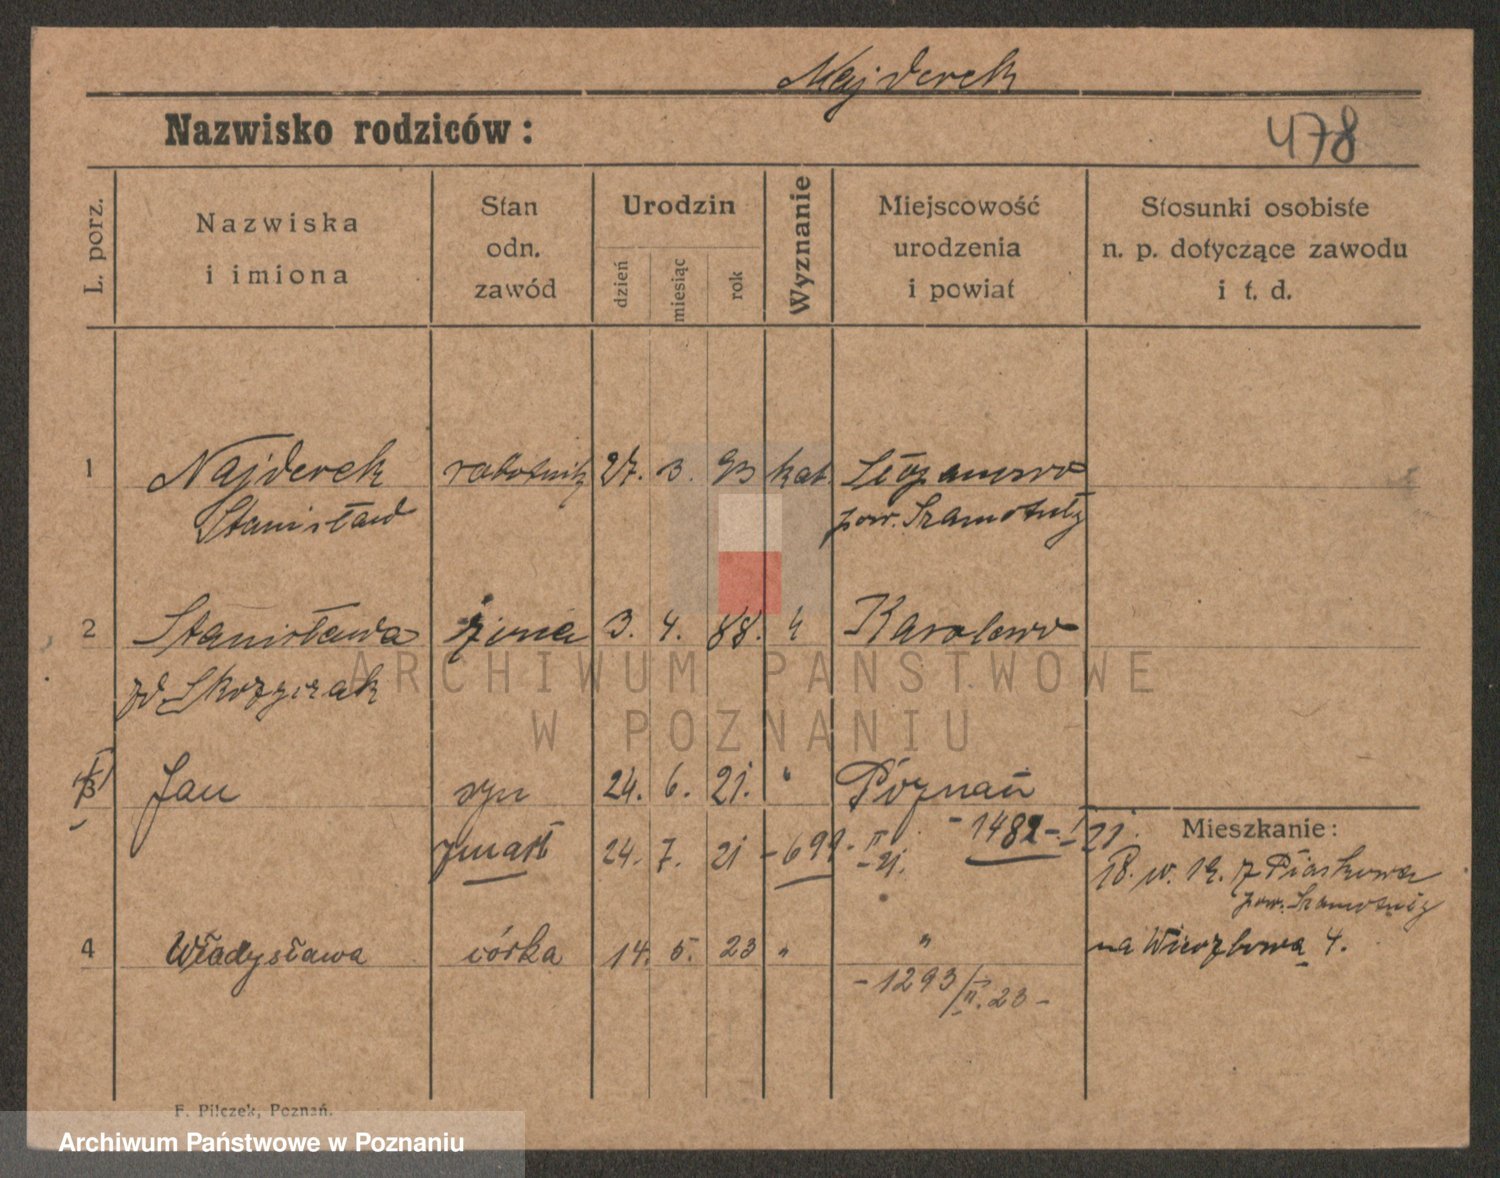 Najderek
Nazwisko rodziców:
478
L. porz.
Nazwiska
i imiona
Stan
odn.
zawód
Urodzin
dzień
miesiąc
rok
Wyznanie
Miejscowość
urodzenia
i powiat
Stosunki osobiste
n. p. dotyczące zawodu
i t. d.
1 Najderek robotnik 27. 3. 93 kat.
Stanisław pow. Szamotuły
2 Stanisława żona 3. 4. 88. " Karolewo
zd. Skrzypczak
3 Jan syn 24. 6. 21. " Poznań
zmarł 24. 7. 21 - 699 - II 21. - 1482 - I 21.
Mieszkanie:
18. IV. 19. z Piaskowa
pow. Szamotuły
4 Władysława córka 14. 5. 23 " "
na Wierzbowa 4.
- 1293/II. 23 -
F. Pilczek, Poznań.
ARCHIWUM PAŃSTWOWE
W POZNANIU
Archiwum Państwowe w Poznaniu